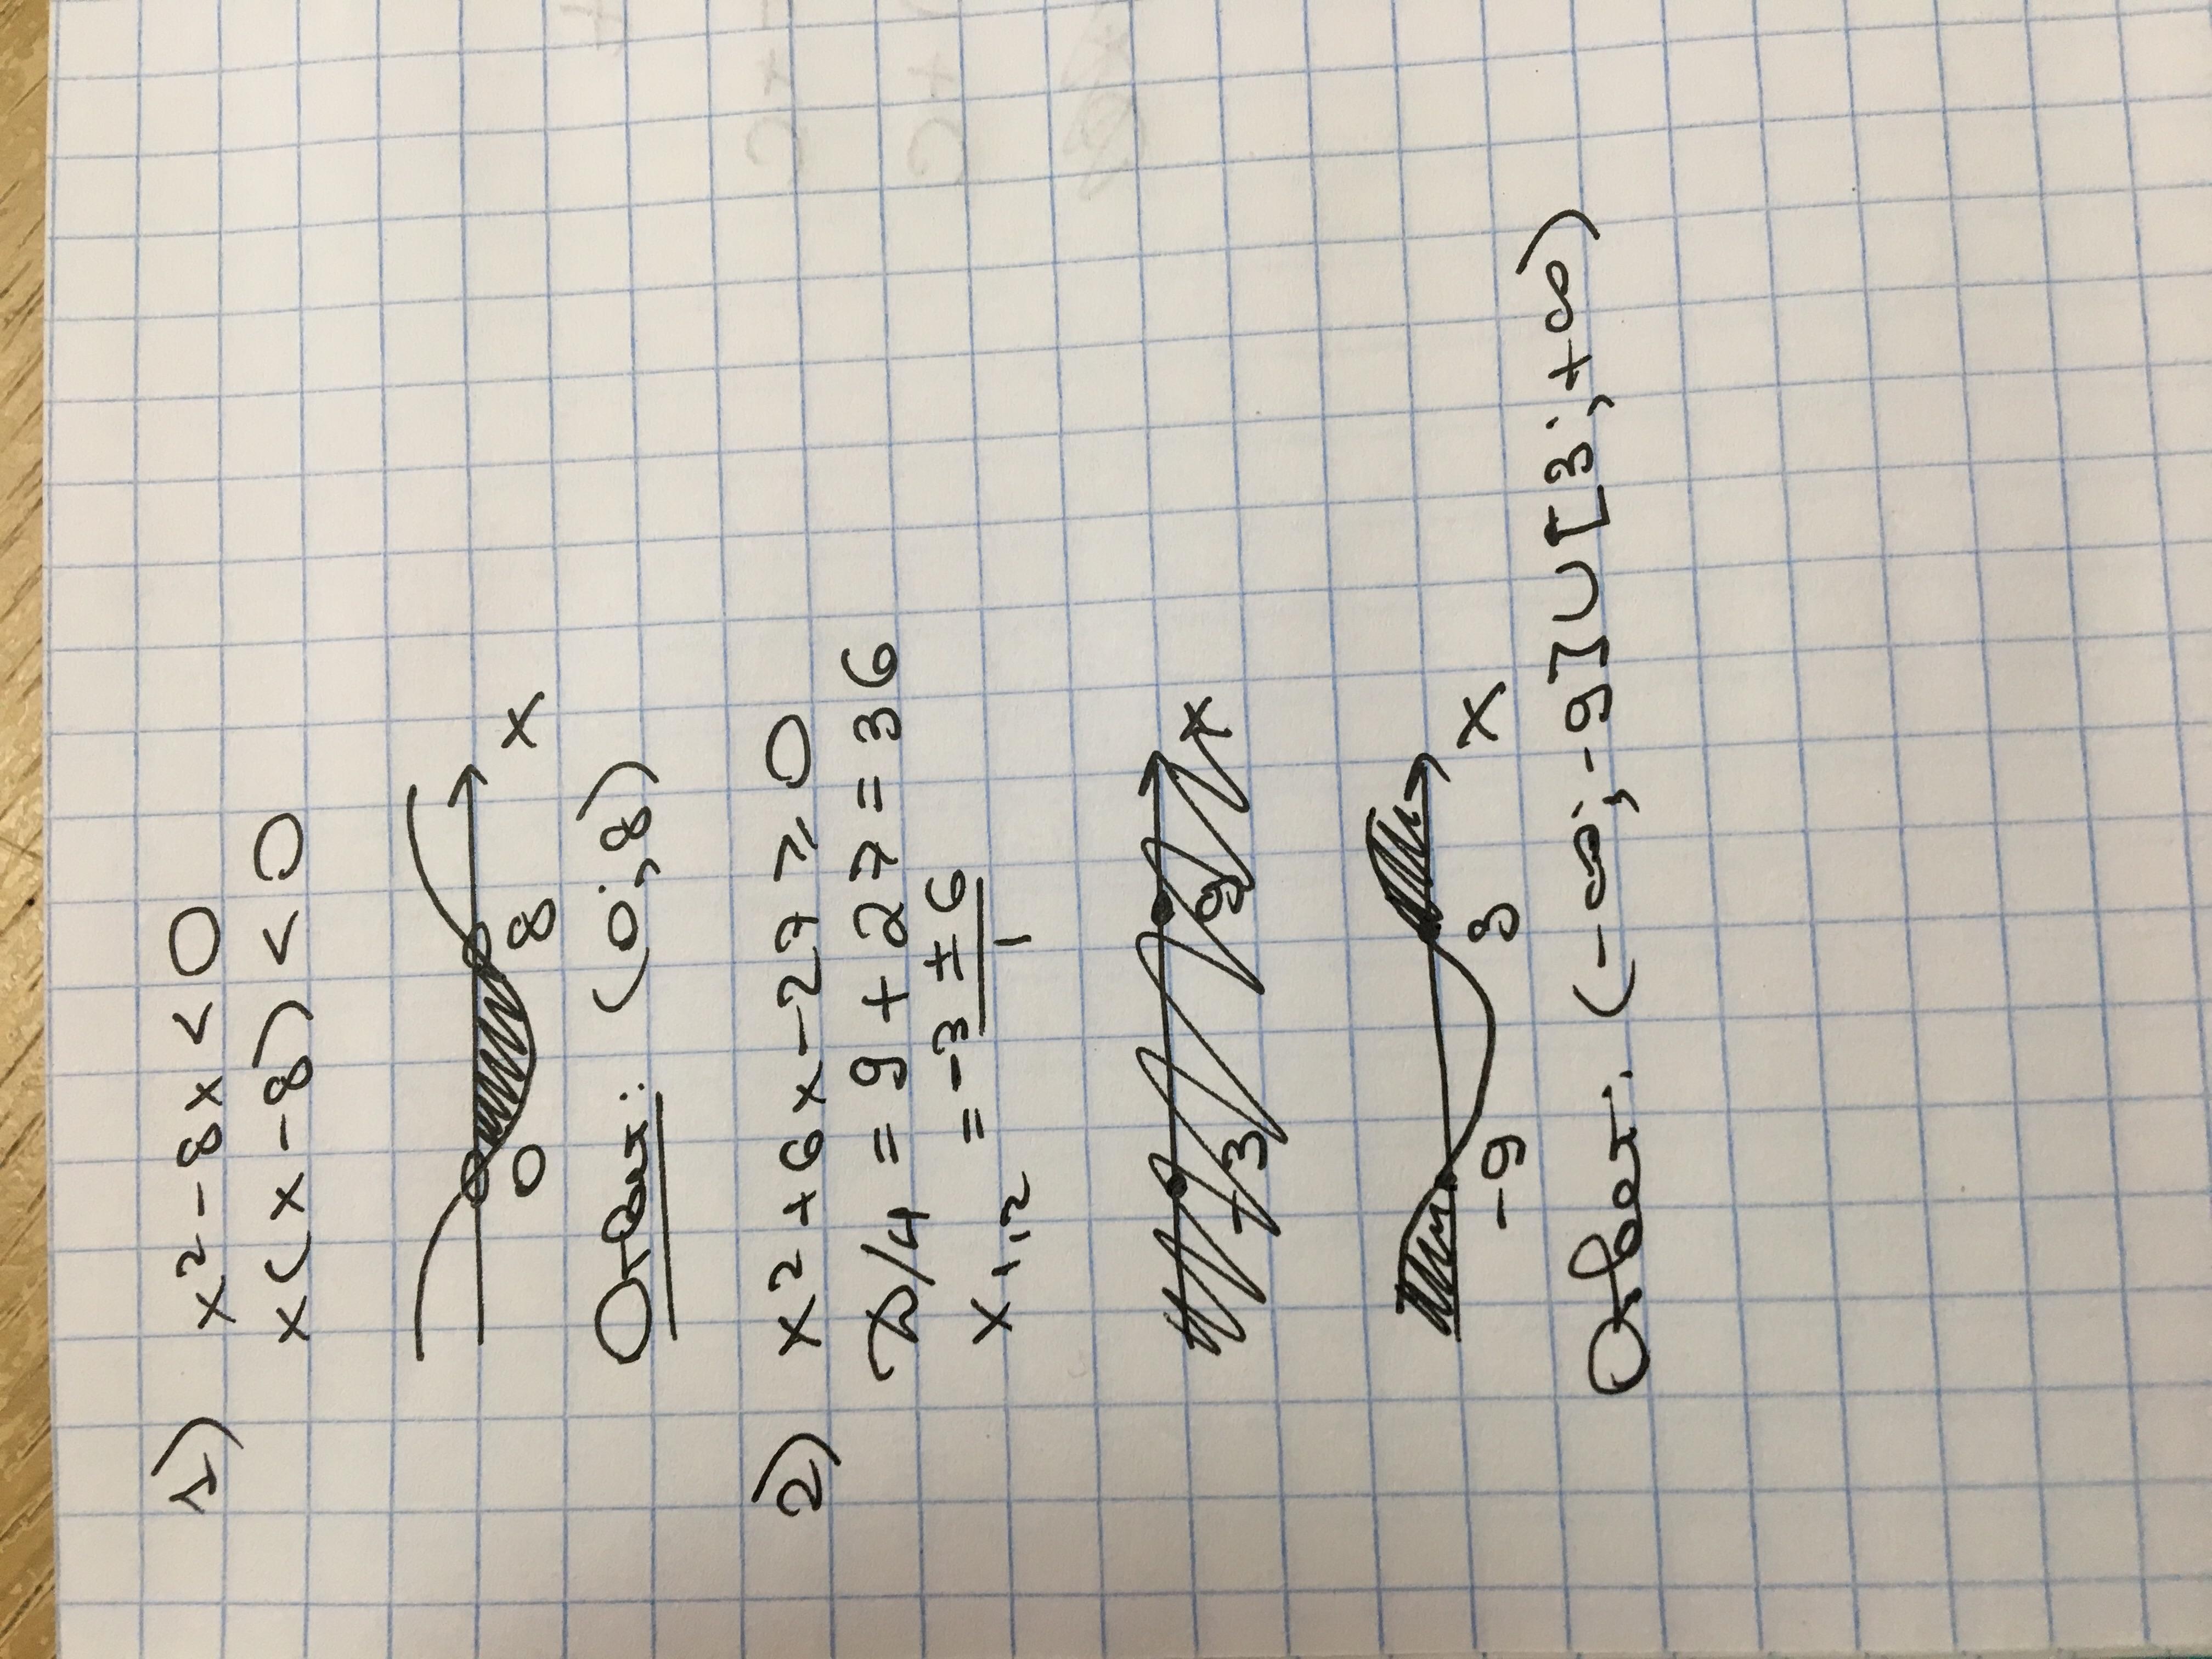 1) x² - 8x < 0
x(x - 8) < 0
0 8 x
Ответ: (0; 8)
2) x² + 6x - 27 ⩾ 0
D/4 = 9 + 27 = 36
x₁,₂ = (-3 ± 6)/1
-9 3 x
Ответ: (-∞; -9] ∪ [3; +∞)